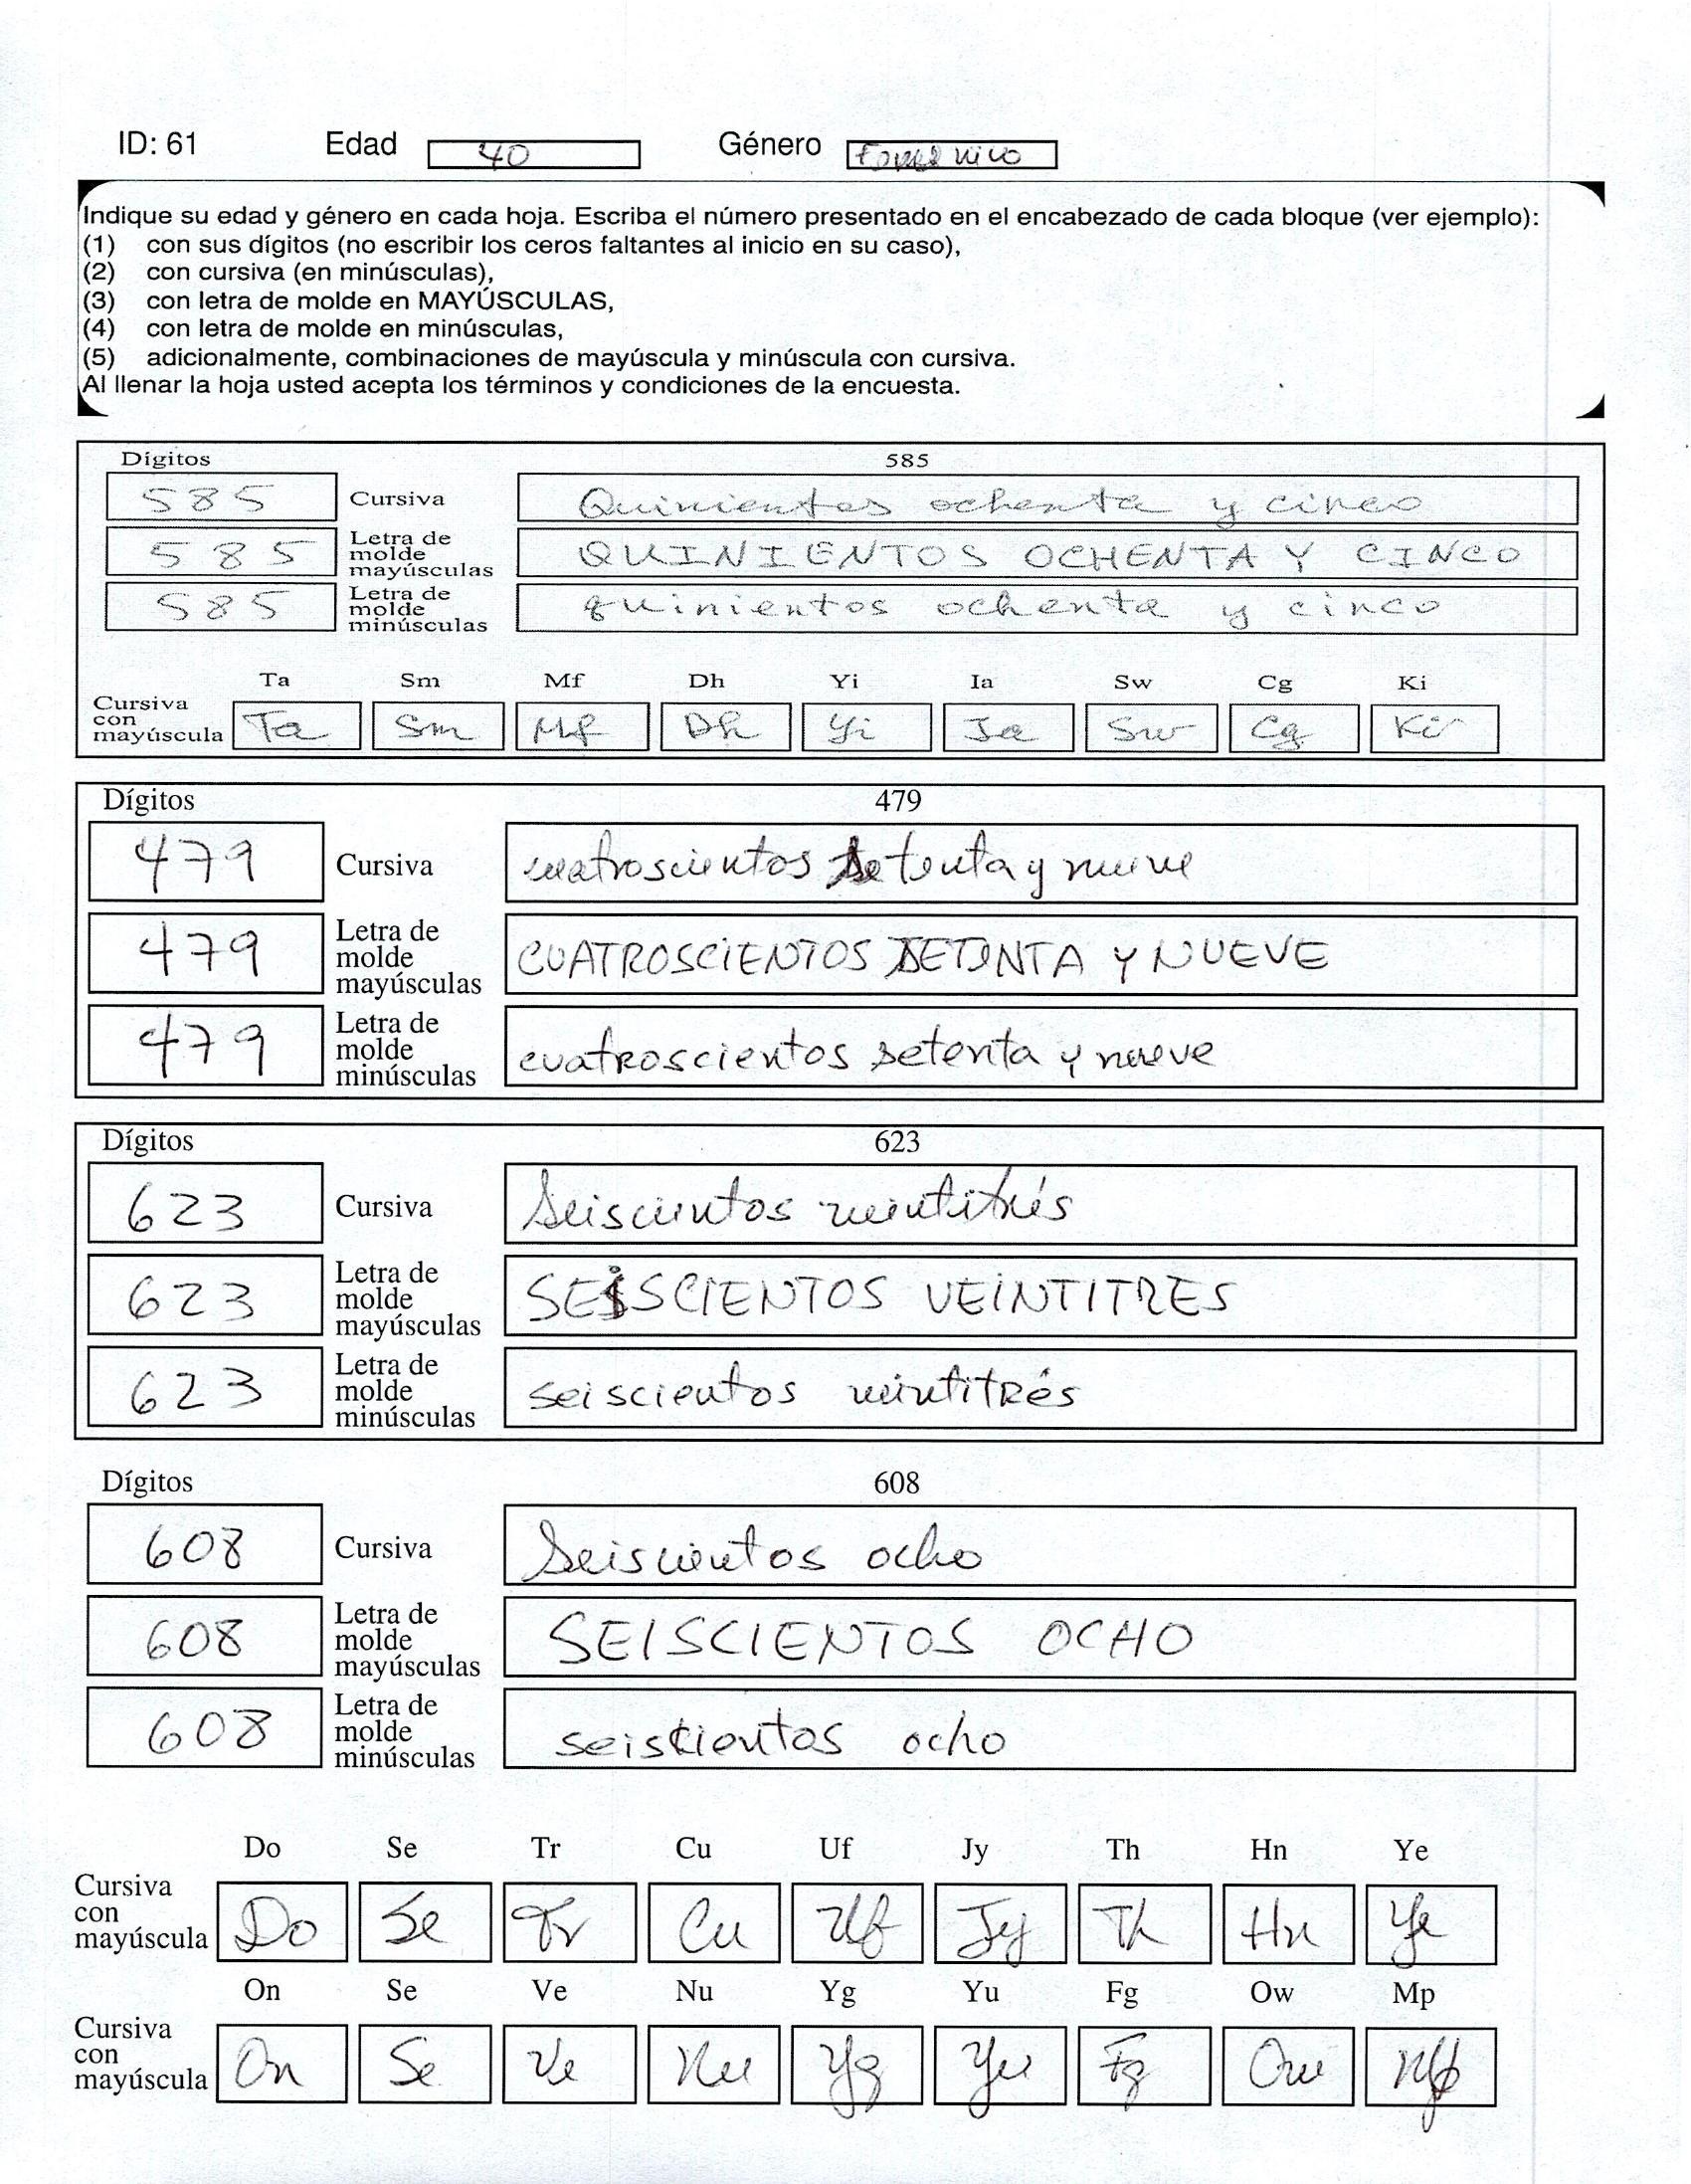 ID: 61 Edad 40 Género
Indique su edad y género en cada hoja. Escriba el número presentado en el encabezado de cada bloque (ver ejemplo):
(1) con sus dígitos (no escribir los ceros faltantes al inicio en su caso),
(2) con cursiva (en minúsculas),
(3) con letra de molde en MAYÚSCULAS,
(4) con letra de molde en minúsculas,
(5) adicionalmente, combinaciones de mayúscula y minúscula con cursiva.
Al llenar la hoja usted acepta los términos y condiciones de la encuesta.
Dígitos 585
585 Cursiva Quinientos ochenta y cinco
585 Letra de molde mayúsculas QUINIENTOS OCHENTA Y CINCO
585 Letra de molde minúsculas quinientos ochenta y cinco
Ta Sm Mf Dh Yi Ia Sw Cg Ki
Cursiva con mayúscula Ta Sm Mf Dh Yi Ia Sw Cg Ki
Dígitos 479
479 Cursiva cuatroscientos setenta y nueve
479 Letra de molde mayúsculas CUATROSCIENTOS SETENTA Y NUEVE
479 Letra de molde minúsculas cuatroscientos setenta y nueve
Dígitos 623
623 Cursiva Seiscientos veintitrés
623 Letra de molde mayúsculas SEISCIENTOS VEINTITRES
623 Letra de molde minúsculas seiscientos veintitrés
Dígitos 608
608 Cursiva Seiscientos ocho
608 Letra de molde mayúsculas SEISCIENTOS OCHO
608 Letra de molde minúsculas seiscientos ocho
Do Se Tr Cu Uf Jy Th Hn Ye
Cursiva con mayúscula Do Se Tr Cu Uf Jy Th Hn Ye
On Se Ve Nu Yg Yu Fg Ow Mp
Cursiva con mayúscula On Se Ve Nu Yg Yu Fg Ow Mp